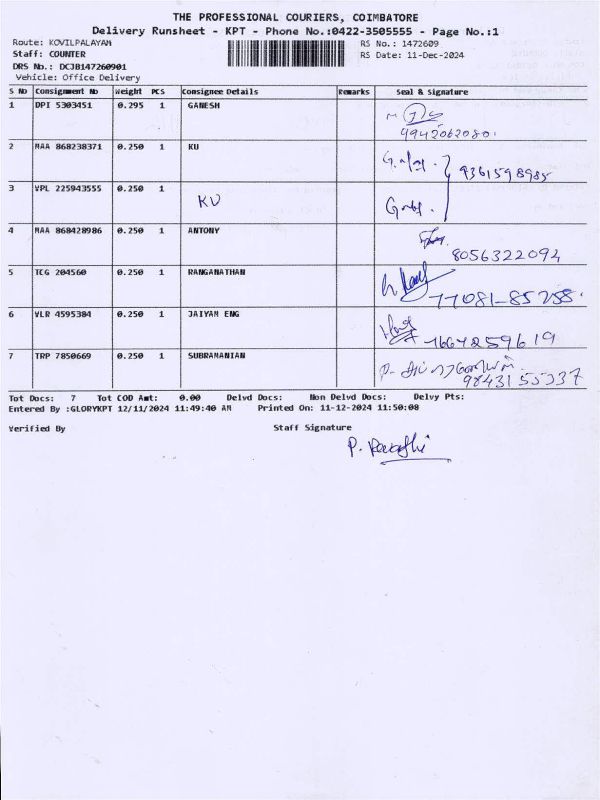 THE PROFESSIONAL COURIERS, COIMBATORE
Delivery Runsheet - KPT - Phone No.:0422-3505555 - Page No.:1
Route: KOVILPALAYAM
RS No.: 1472609
Staff: COUNTER
RS Date: 11-Dec-2024
DRS No.: DCJB147260901
Vehicle: Office Delivery
S No Consignment No Weight PCS Consignee Details Remarks Seal & Signature
1 DPI 5303451 0.295 1 GANESH
4942062080.
2 MAA 868238371 0.250 1 KU
9361598985
3 VPL 225943555 0.250 1 KU
4 MAA 868428986 0.250 1 ANTONY
8056322094
5 TCG 204560 0.250 1 RANGANATHAN
77081-85288.
6 VLR 4595384 0.250 1 JAIYAM ENG
7 TRP 7850669 0.250 1 SUBRAMANIAN
9843155337
Tot Docs: 7 Tot COD Amt: 0.00 Delvd Docs: Non Delvd Docs: Delvy Pts:
Entered By :GLORYKPT 12/11/2024 11:49:40 AM Printed On: 11-12-2024 11:50:08
Verified By Staff Signature